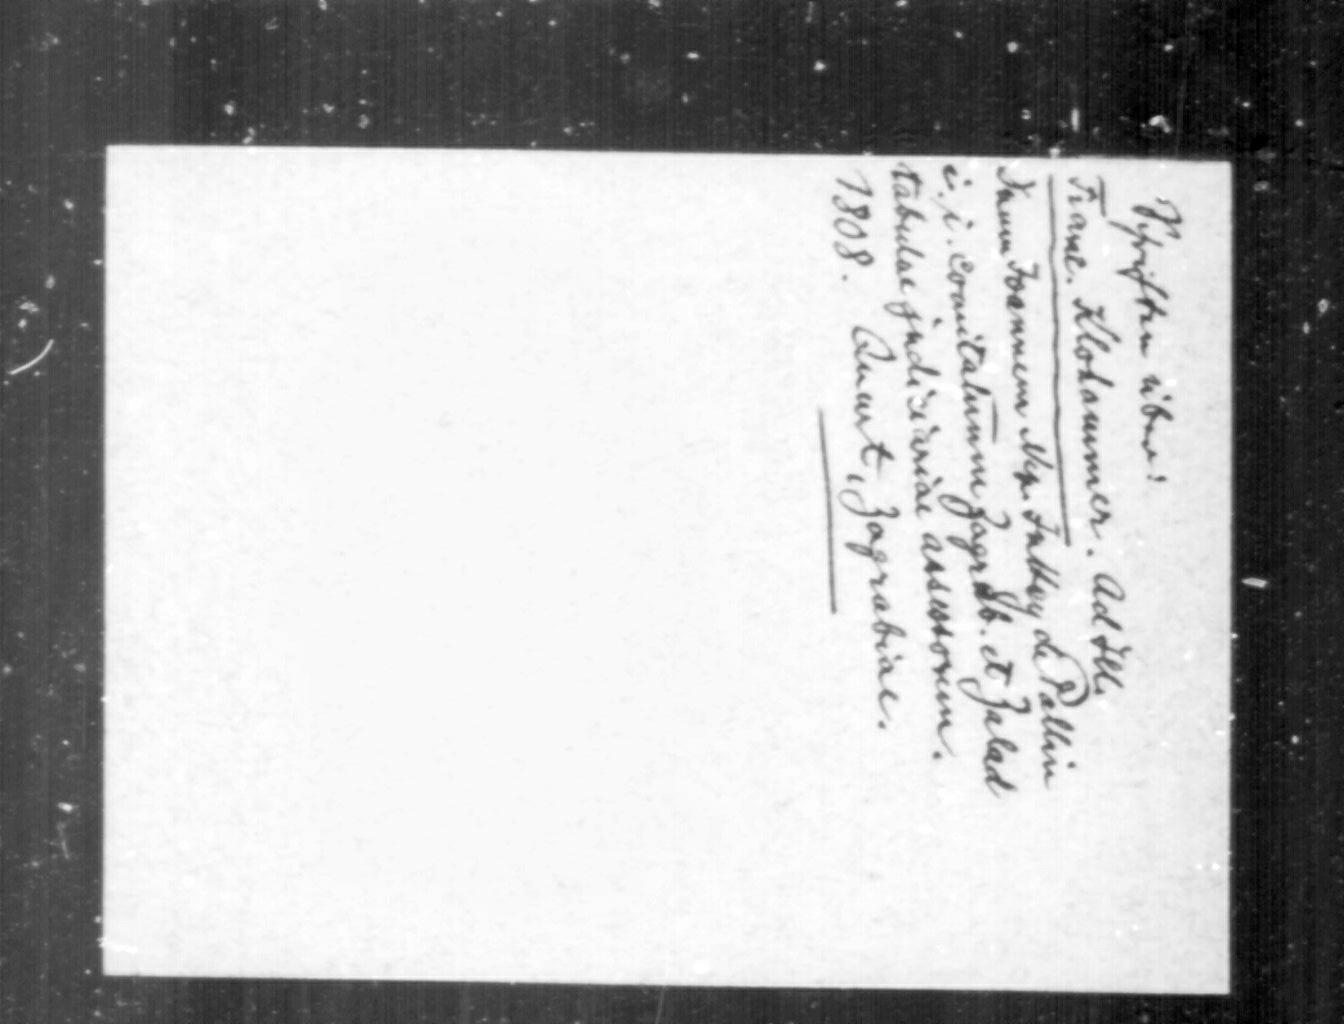 Schriften über:
Franc. Klohammer. Ad Ill.
Dnum Joannem Nep. Inkey de Pallin
i. i. comitatuum Zagrab. et Zalad
tabulae judiciariae assessorem.
1808. Quart, Zagrabiae.